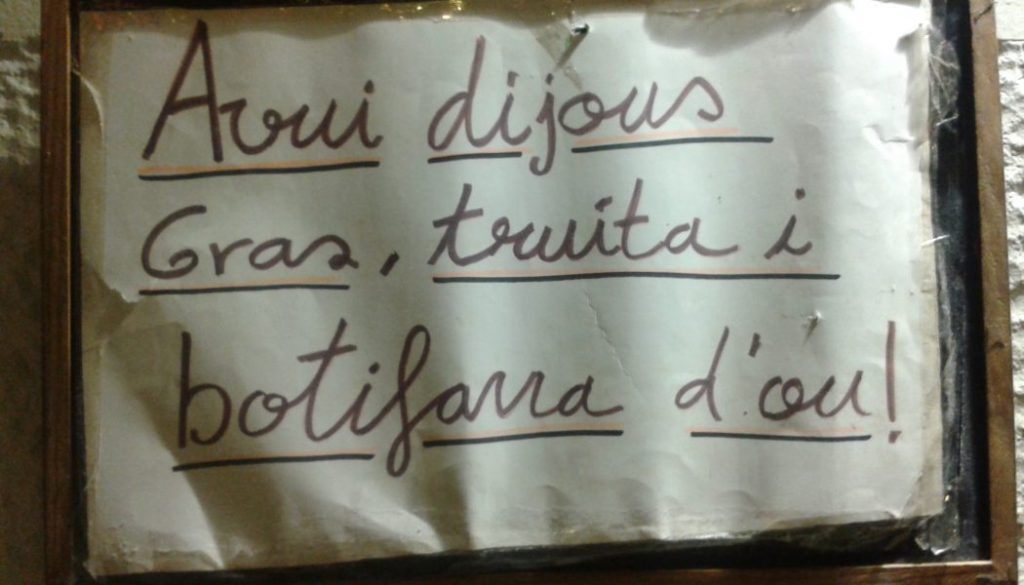 Avui dijous
Gras, truita i
botifarra d'ou!